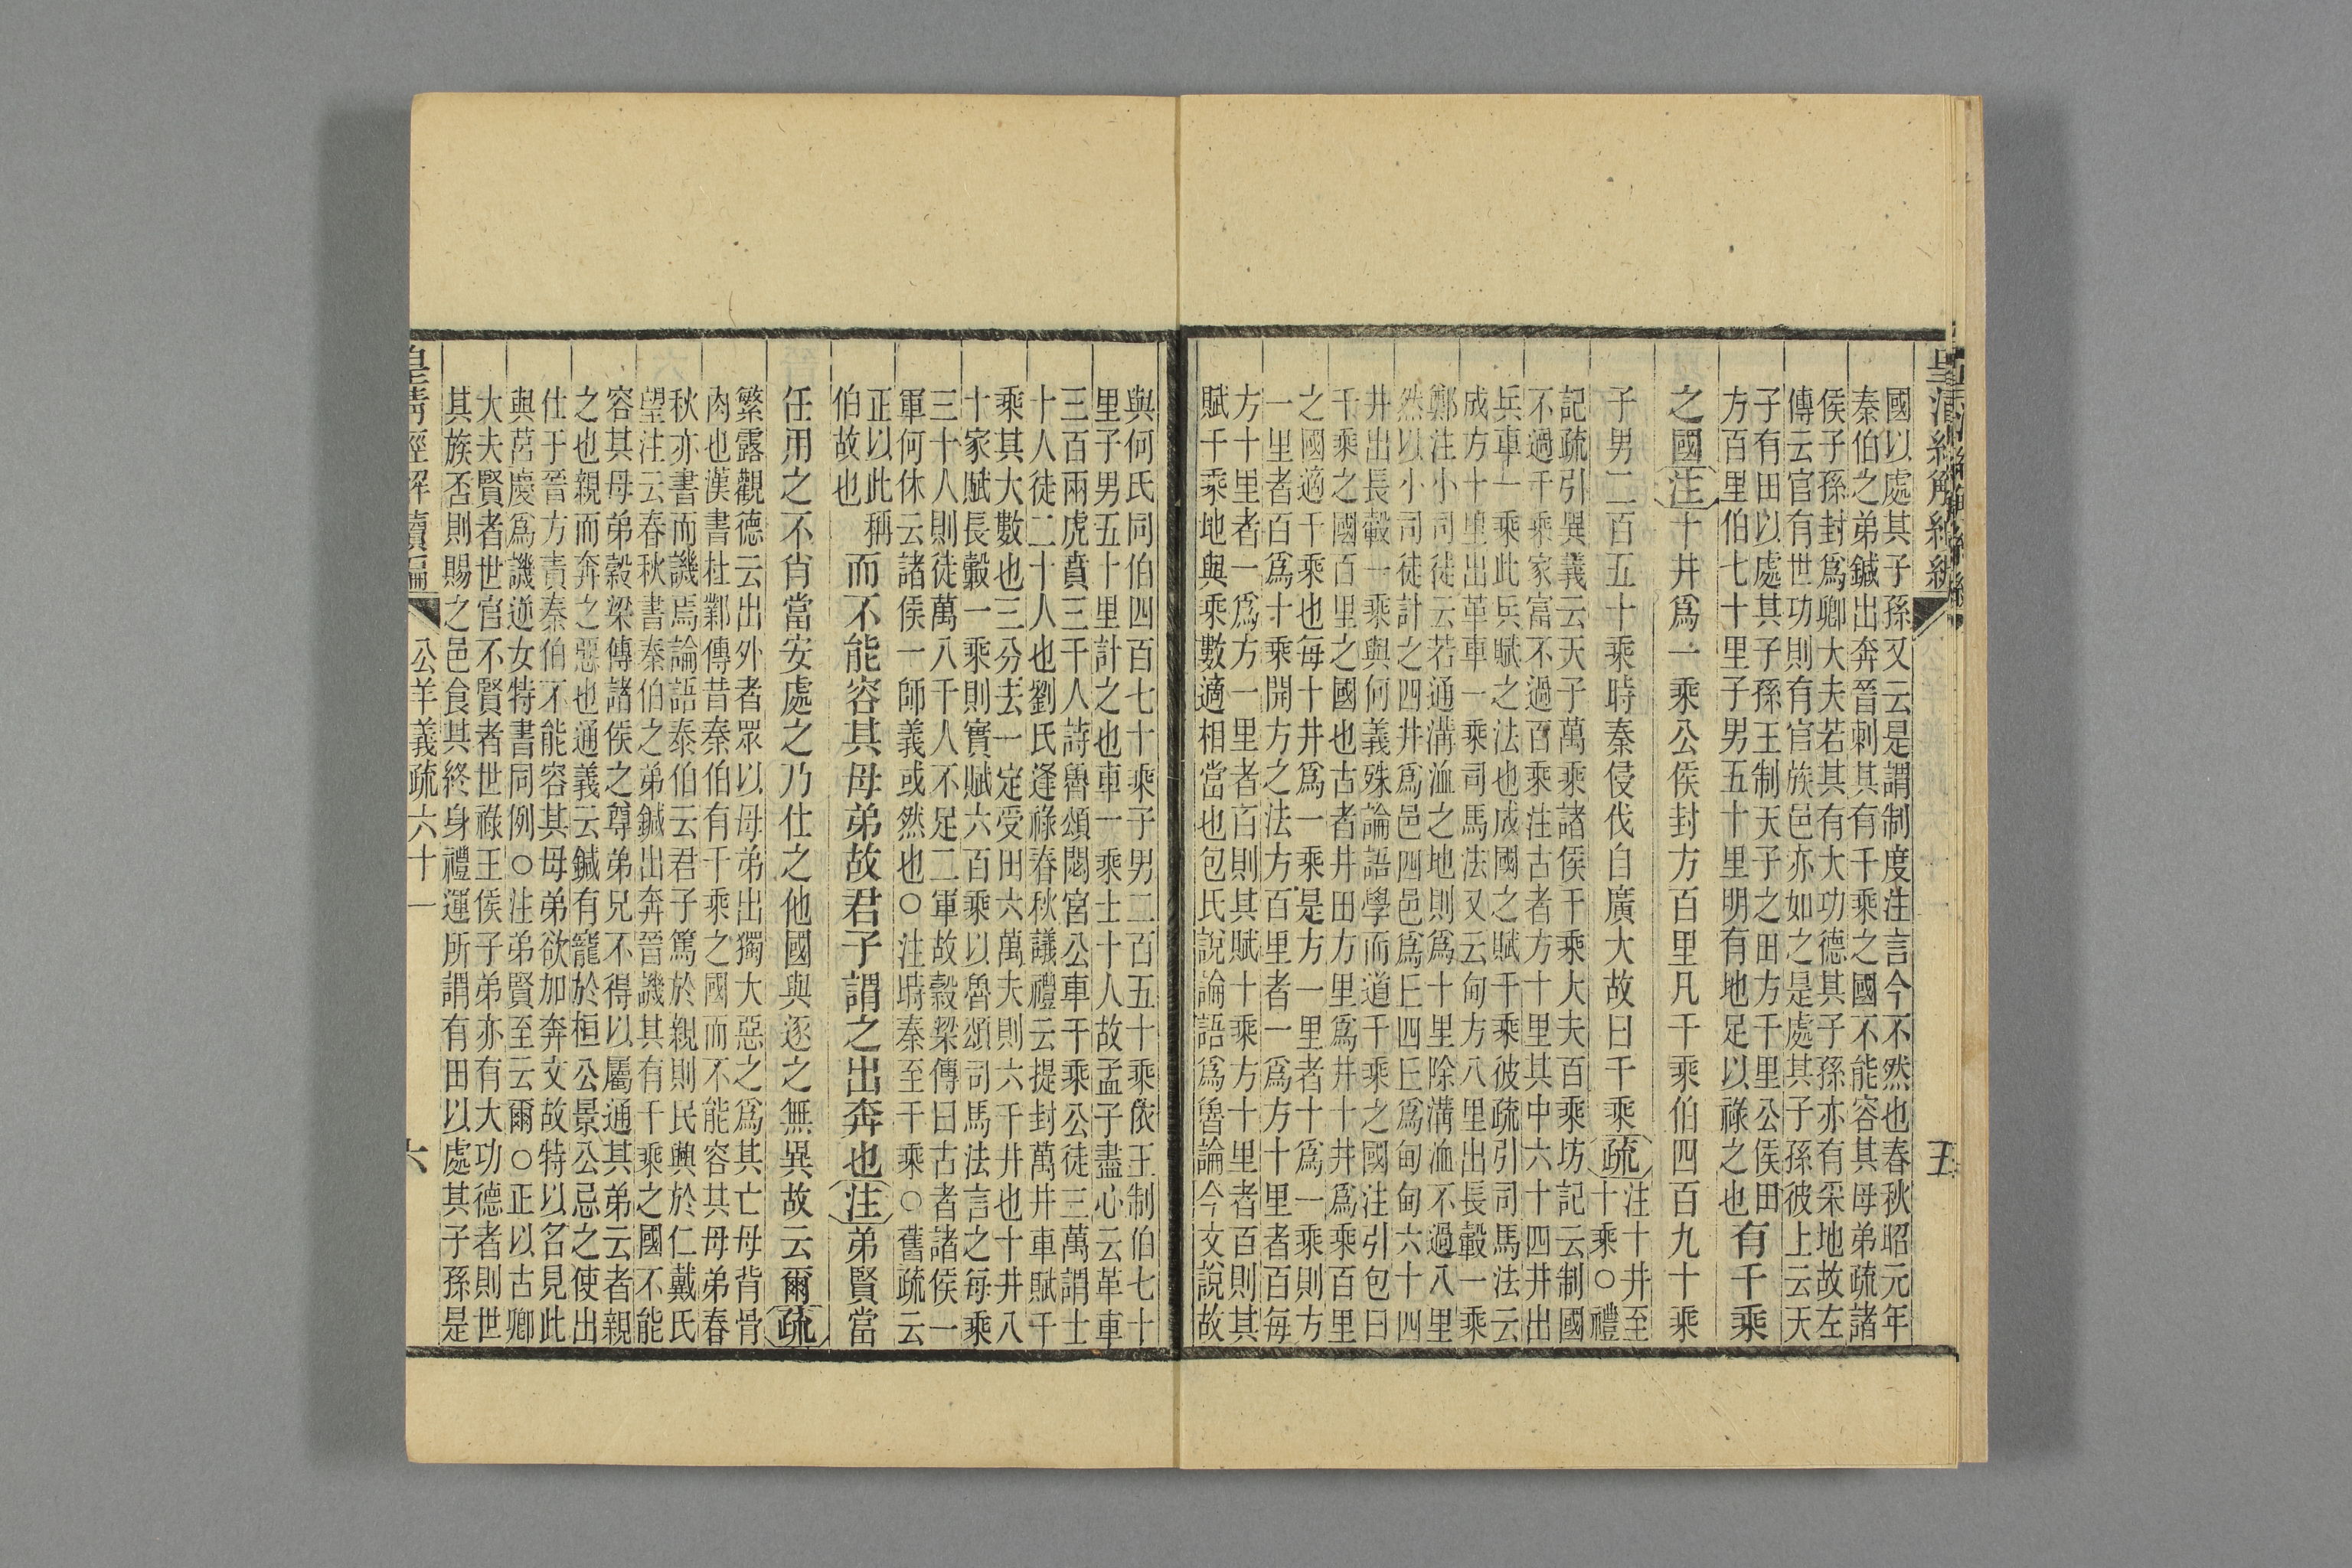 國以處其子孫又云是謂制度注言今不然也春秋昭元年
秦伯之弟鍼出奔晉刺其有千乘之國不能容其母弟疏諸
侯子孫封爲卿大夫若其有大功德其子孫亦有采地故左
傳云官有世功則有官族邑亦如之是處其子孫彼上云天
子有田以處其子孫王制天子之田方千里公侯田
方百里伯七十里子男五十里明有地足以祿之也有千乘
之國注十井爲一乘公侯封方百里凡千乘伯四百九十乘
子男二百五十乘時秦侵伐自廣大故曰千乘疏注十井至
十乘○禮
記疏引異義云天子萬乘諸侯千乘大夫百乘坊記云制國
不過千乘家富不過百乘注古者方十里其中六十四井出
兵車一乘此兵賦之法也成國之賦千乘彼疏引司馬法云
成方十里出革車一乘司馬法又云甸方八里出長轂一乘
鄭注小司徒云若通溝洫之地則爲十里除溝洫不過八里
然以小司徒計之四井爲邑四邑爲丘四丘爲甸甸六十四
井出長轂一乘與何義殊論語學而道千乘之國注引包曰
千乘之國百里之國也古者井田方里爲井十井爲乘百里
之國適千乘也每十井爲一乘是方一里者十爲一乘則方
一里者百爲十乘開方之法方百里者一爲方十里者百每
方十里者一爲方一里者百則其賦十乘方十里者百則其
賦千乘地與乘數適相當也包氏說論語爲魯論今文說故
皇清經解續編
五
與何氏同伯四百七十乘子男二百五十乘依王制伯七十
里子男五十里計之也車一乘士十人故孟子盡心云革車
三百兩虎賁三千人詩魯頌閟宮公車千乘公徒三萬謂士
十人徒二十人也劉氏逢祿春秋議禮云提封萬井車賦千
乘其大數也三分去一定受田六萬夫則六千井也十井八
十家賦長轂一乘則實賦六百乘以魯頌司馬法言之每乘
三十人則徒萬八千人不足二軍故穀梁傳曰古者諸侯一
軍何休云諸侯一師義或然也○注時秦至千乘○舊疏云
正以此稱
伯故也而不能容其母弟故君子謂之出奔也注弟賢當
任用之不肖當安處之乃仕之他國與逐之無異故云爾疏
繁露觀德云出外者眾以母弟出獨大惡之爲其亡母背骨
肉也漢書杜鄴傳昔秦伯有千乘之國而不能容其母弟春
秋亦書而譏焉論語泰伯云君子篤於親則民興於仁戴氏
望注云春秋書秦伯之弟鍼出奔晉譏其有千乘之國不能
容其母弟穀梁傳諸侯之尊弟兄不得以屬通其弟云者親
之也親而奔之惡也通義云鍼有寵於桓公景公忌之使出
仕于晉方責秦伯不能容其母弟欲加奔文故特以名見此
與莒慶爲譏逆女特書同例○注弟賢至云爾○正以古卿
大夫賢者世官不賢者世祿王侯子弟亦有大功德者則世
其族否則賜之邑食其終身禮運所謂有田以處其子孫是
皇清經解續編 公羊義疏六十一
六